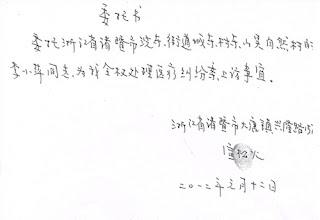 委托书
委托浙江省诸暨市浣东街道城东村东山吴自然村
李小萍同志，为我全权处理医疗纠纷案上访事宜。
浙江省诸暨市大唐镇兴隆路
二〇一二年元月十二日